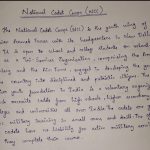 National Cadet Corps (NCC)
The National Cadet Corps (NCC) is the youth wing of
Indian Armed forces with its headquarters in New Delhi
It is open to school and college students on voluntary
as a Tri-Services Organisation, comprising the Army
Navy and the Air Force, engaged in developing the youth
the country into disciplined and patriotic citizens. The
youth foundation in India is a voluntary
recruits cadets from high schools, higher secondary
colleges and universities all over India. The cadets are given
military training in small arms and drill. The
cadets have no liability for active military service
they complete their course.